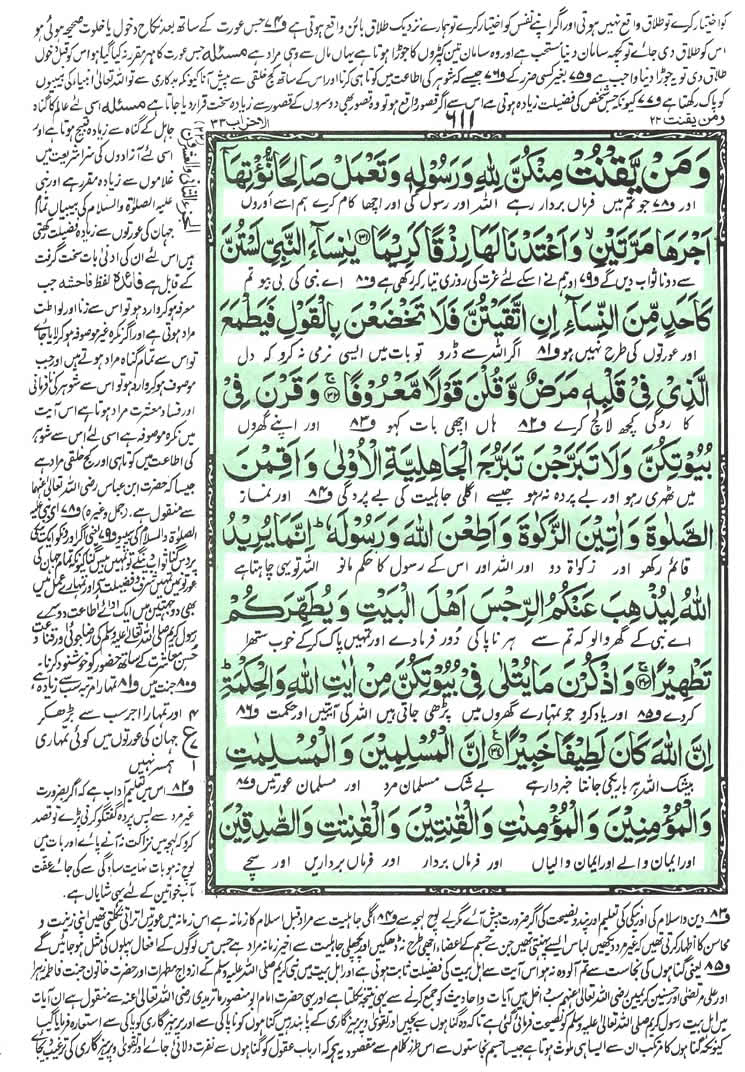 کو اختیار کرے تو طلاق واقع نہیں ہوتی اور اگر اپنے نفس کو اختیار کرے تو ہمارے نزدیک طلاق بائن واقع ہوتی ہے و۷۴ جس عورت کے ساتھ بعد نکاح دخول یا خلوت صحیحہ ہوئی ہو
اس کو طلاق دی جائے تو کچھ سامان دینا مستحب ہے اور وہ سامان تین کپڑوں کا جوڑا ہوتا ہے یہاں مال سے وہی مراد ہے مسئلہ جس عورت کا مہر مقرر نہ کیا گیا ہو اس کو قبل دخول
طلاق دی تو یہ جوڑا دینا واجب ہے و۷۵ بغیر کسی ضرر کے و۷۶ جیسے کہ شوہر کی اطاعت میں کوتاہی کرنا اور اس کے ساتھ کج خلقی سے پیش آنا کیونکہ بدکاری سے تو اللہ تعالیٰ انبیاء کی بیبیوں
کو پاک رکھتا ہے و۷۷ کیونکہ جس شخص کی فضیلت زیادہ ہوتی ہے اس سے اگر قصور واقع ہو تو وہ قصور بھی دوسروں کے قصور سے زیادہ سخت قرار دیا جاتا ہے مسئلہ اسی لئے عالم کا گناہ
ومن یقنت ۲۲
۶۱۱
الاحزاب ۳۳
وَمَنْ يَّقْنُتْ مِنْكُنَّ لِلّٰهِ وَرَسُوْلِهٖ وَتَعْمَلْ صَالِحًا نُّؤْتِهَاۤ
اور و۷۸ جو تم میں فرماں بردار رہے اللہ اور رسول کی اور اچھا کام کرے ہم اسے اوروں
اَجْرَهَا مَرَّتَيْنِ ۙ وَاَعْتَدْنَا لَهَا رِزْقًا كَرِيْمًا ﴿۳۱﴾ يٰنِسَآءَ النَّبِيِّ لَسْتُنَّ
سے دونا ثواب دیں گے و۷۹ اور ہم نے اس کے لئے عزت کی روزی تیار کر رکھی ہے و۸۰ اے نبی کی بی بیو تم
كَاَحَدٍ مِّنَ النِّسَآءِ اِنِ اتَّقَيْتُنَّ فَلَا تَخْضَعْنَ بِالْقَوْلِ فَيَطْمَعَ
اور عورتوں کی طرح نہیں ہو و۸۱ اگر اللہ سے ڈرو تو بات میں ایسی نرمی نہ کرو کہ دل
الَّذِيْ فِيْ قَلْبِهٖ مَرَضٌ وَّقُلْنَ قَوْلًا مَّعْرُوْفًا ﴿۳۲﴾ وَقَرْنَ فِيْ
کا روگی کچھ لالچ کرے و۸۲ ہاں اچھی بات کہو و۸۳ اور اپنے گھروں
بُيُوْتِكُنَّ وَلَا تَبَرَّجْنَ تَبَرُّجَ الْجَاهِلِيَّةِ الْاُوْلٰى وَاَقِمْنَ
میں ٹھہری رہو اور بے پردہ نہ ہو جیسے اگلی جاہلیت کی بے پردگی و۸۴ اور نماز
الصَّلٰوةَ وَاٰتِيْنَ الزَّكٰوةَ وَاَطِعْنَ اللّٰهَ وَرَسُوْلَهٗ ؕ اِنَّمَا يُرِيْدُ
قائم رکھو اور زکوٰۃ دو اور اللہ اور اس کے رسول کا حکم مانو اللہ تو یہی چاہتا ہے
اللّٰهُ لِيُذْهِبَ عَنْكُمُ الرِّجْسَ اَهْلَ الْبَيْتِ وَيُطَهِّرَكُمْ
اے نبی کے گھر والو کہ تم سے ہر ناپاکی دور فرما دے اور تمہیں پاک کر کے خوب ستھرا
تَطْهِيْرًا ﴿۳۳﴾ وَاذْكُرْنَ مَا يُتْلٰى فِيْ بُيُوْتِكُنَّ مِنْ اٰيٰتِ اللّٰهِ وَالْحِكْمَةِ ؕ
کردے و۸۵ اور یاد کرو جو تمہارے گھروں میں پڑھی جاتی ہیں اللہ کی آیتیں اور حکمت و۸۶
اِنَّ اللّٰهَ كَانَ لَطِيْفًا خَبِيْرًا ﴿۳۴﴾ اِنَّ الْمُسْلِمِيْنَ وَالْمُسْلِمٰتِ
بیشک اللہ ہر باریکی جانتا خبردار ہے بے شک مسلمان مرد اور مسلمان عورتیں و۸۷
وَالْمُؤْمِنِيْنَ وَالْمُؤْمِنٰتِ وَالْقٰنِتِيْنَ وَالْقٰنِتٰتِ وَالصّٰدِقِيْنَ
اور ایمان والے اور ایمان والیاں اور فرماں بردار اور فرماں برداریں اور سچے
جاہل کے گناہ سے زیادہ قبیح ہوتا ہے اور
اسی لئے آزادوں کی سزا شریعت میں
غلاموں سے زیادہ مقرر ہے اور نبی
علیہ الصلاۃ والسلام کی بیبیاں تمام
جہان کی عورتوں سے زیادہ فضیلت رکھتی
ہیں اس لئے ان کی ادنیٰ بات سخت گرفت
کے قابل ہے فائدہ لفظ فاحشہ جب
معرفہ ہو کر وارد ہو تو اس سے زنا اور لواطت
مراد ہوتی ہے اور اگر نکرہ غیر موصوفہ ہو کر لایا جائے
تو اس سے تمام گناہ مراد ہوتے ہیں اور جب
موصوف ہو کر وارد ہو تو اس سے شوہر کی نافرمانی
اور فساد معشرت مراد ہوتا ہے اس آیت
میں نکرہ موصوفہ ہے اسی لئے اس سے شوہر
کی اطاعت میں کوتاہی اور کج خلقی مراد ہے
جیسا کہ حضرت ابن عباس رضی اللہ تعالیٰ عنہما
سے منقول ہے۔ (جمل وغیرہ) و۷۸ اے نبی علیہ
الصلاۃ والسلام کی بیبیو و۷۹ یعنی اگر اوروں کو ایک نیکی
پر دس گنا ثواب دینگے تو تمہیں بیس گنا کیونکہ تمام جہان کی
عورتوں میں تمہیں شرف و فضیلت ہے اور تمہارے عمل میں
بھی دو جہتیں ہیں ایک ادائے اطاعت دوسرے
رسول کریم صلی اللہ تعالیٰ علیہ وسلم کی رضا جوئی اور قناعت و
حسن معاشرت کے ساتھ حضور کو خوشنود کرنا۔
و۸۰ جنت میں و۸۱ تمہارا مرتبہ سب سے زیادہ ہے
اور تمہارا اجر سب سے بڑھ کر
جہان کی عورتوں میں کوئی تمہاری
ہمسر نہیں
و۸۲ اس میں تعلیم آداب ہے کہ اگر بضرورت
غیر مرد سے پس پردہ گفتگو کرنی پڑے تو قصد
کرو کہ لہجہ میں نزاکت نہ آنے پائے اور بات میں
لوچ نہ ہو بات نہایت سادگی سے کی جائے عفت
مآب خواتین کے لئے یہی شایاں ہے۔
و۸۳ دین و اسلام کی اور نیکی کی تعلیم اور پند و نصیحت کی اگر ضرورت پیش آئے مگر بے لوچ لہجہ سے و۸۴ اگلی جاہلیت سے مراد قبل اسلام کا زمانہ ہے اس زمانہ میں عورتیں اتراتی نکلتی تھیں اپنی زینت و
محاسن کا اظہار کرتی تھیں کہ غیر مرد دیکھیں لباس ایسے پہنتی تھیں جن سے جسم کے اعضاء اچھی طرح نہ ڈھکیں اور پچھلی جاہلیت سے اخیر زمانہ مراد ہے جس میں لوگوں کے افعال پہلوں کی مثل ہو جائیں گے
و۸۵ یعنی گناہوں کی نجاست سے تم آلودہ نہ ہو اس آیت سے اہل بیت کی فضیلت ثابت ہوتی ہے اور اہل بیت میں نبی کریم صلی اللہ علیہ وسلم کے ازواج مطہرات اور حضرت خاتون جنت فاطمہ زہرا
اور علی مرتضیٰ اور حسنین کریمین رضی اللہ تعالیٰ عنہم سب داخل ہیں آیات و احادیث کو جمع کرنے سے یہی نتیجہ نکلتا ہے اور یہی حضرت امام ابو منصور ماتریدی رضی اللہ تعالیٰ عنہ سے منقول ہے ان آیات
میں اہل بیت رسول کریم صلی اللہ تعالیٰ علیہ وسلم کو نصیحت فرمائی گئی ہے تاکہ وہ گناہوں سے بچیں اور تقویٰ و پرہیزگاری کے پابند رہیں گناہوں کو ناپاکی سے اور پرہیزگاری کو پاکی سے استعارہ فرمایا گیا
کیونکہ گناہوں کا مرتکب ان سے ایسا ہی ملوث ہوتا ہے جیسا جسم نجاستوں سے اس طرز کلام سے مقصود یہ ہے کہ ارباب عقول کو گناہوں سے نفرت دلائی جائے اور تقویٰ و پرہیزگاری کی ترغیب دی جائے